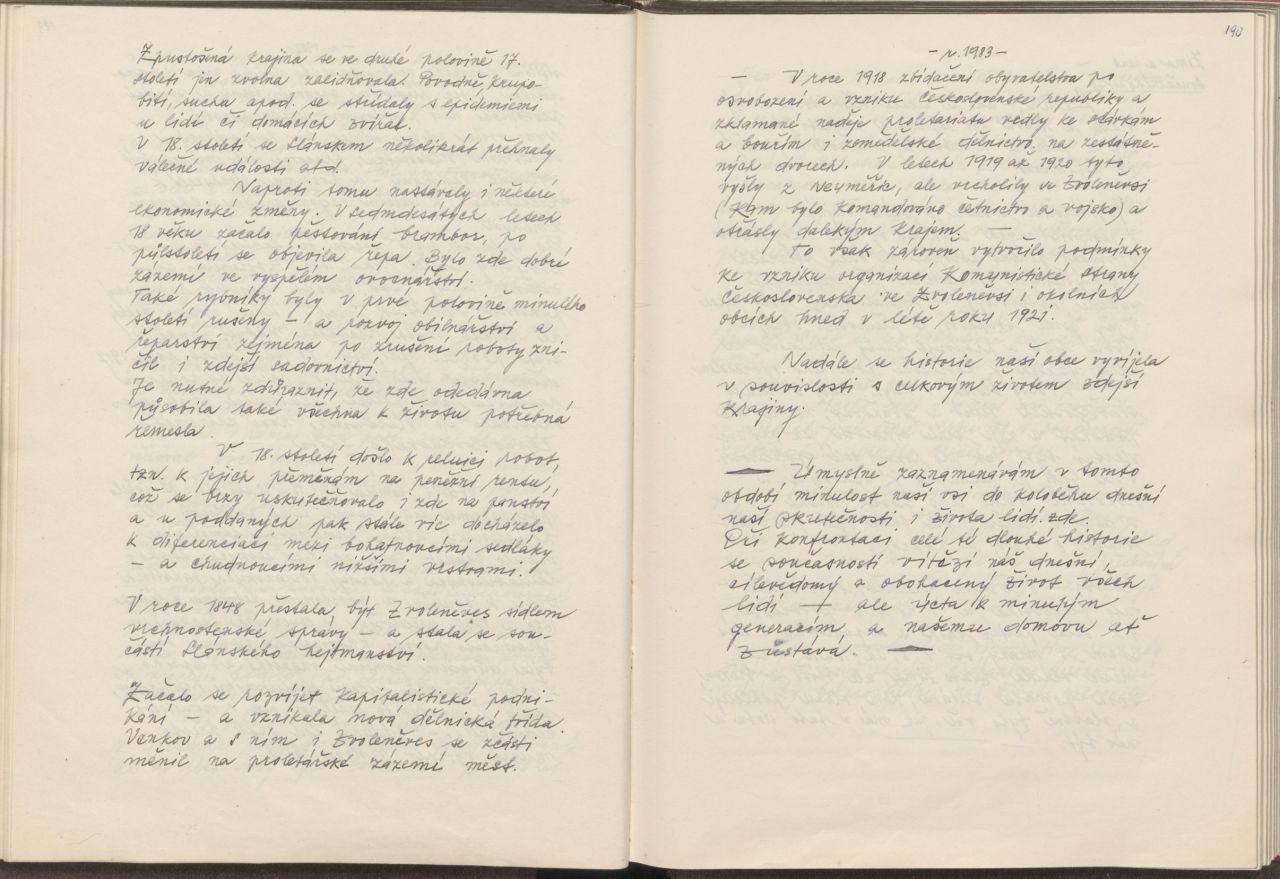 Zpustošená krajina se ve druhé polovině 17.
století jen zvolna zalidňovala. Povodně, krupo-
bití, sucha apod. se střídaly s epidemiemi
u lidí či domácích zvířat.
V 18. století se Slánskem několikrát přehnaly
válečné události atd.
Naproti tomu nastávaly i některé
ekonomické změny. V sedmdesátých letech
18 věku začalo pěstování brambor, po
půlstoletí se objevila řepa. Bylo zde dobré
zázemí ve vyspělém ovocnářství.
Také rybníky byly v prvé polovině minulého
století rušeny – a rozvoj obilnářství a
řeparství zejména po zrušení roboty zni-
čil i zdejší sadovnictví.
Je nutné zdůraznit, že zde odedávna
působila také všechna k životu potřebná
řemesla.
V 18. století došlo k reluici robot,
tzn. k jejich přeměnám na peněžní rentu,
což se brzy uskutečňovalo i zde na panství
a u poddaných pak stále víc docházelo
k diferenciaci mezi bohatnoucími sedláky
– a chudnoucími nižšími vrstvami.
V roce 1848 přestala být Zvoleněves sídlem
vrchnostenské správy – a stala se sou-
částí Slánského hejtmanství.
Začalo se rozvíjet kapitalistické podni-
kání – a vznikala nová dělnická třída.
Venkov a s ním i Zvoleněves se zčásti
měnil na proletářské zázemí měst.
190
– r. 1983 –
– V roce 1918 zbídačení obyvatelstva po
osvobození a vzniku Československé republiky a
zklamané naděje proletariátu vedly ke stávkám
a bouřím i zemědělské dělnictvo na zestátně-
ných dvorech. V letech 1919 až 1920 tyto
vyšly z Neuměřic, ale vrcholily ve Zvoleněvsi
(kam bylo komandováno četnictvo a vojsko) a
otřásly dalekým krajem. –
To však zároveň vytvořilo podmínky
ke vzniku organizací Komunistické strany
Československa ve Zvoleněvsi i okolních
obcích hned v létě roku 1921.
Nadále se historie naší obce vyvíjela
v souvislosti s celkovým životem zdejší
krajiny.
— Úmyslně zaznamenávám v tomto
období minulost naší vsi do koloběhu dnešní
naší skutečnosti i života lidí zde.
Při konfrontaci celé té dlouhé historie
se současností vítězí náš dnešní,
cílevědomý a obohacený život všech
lidí – ale úcta k minulým
generacím a našemu domovu ať
zůstává. —